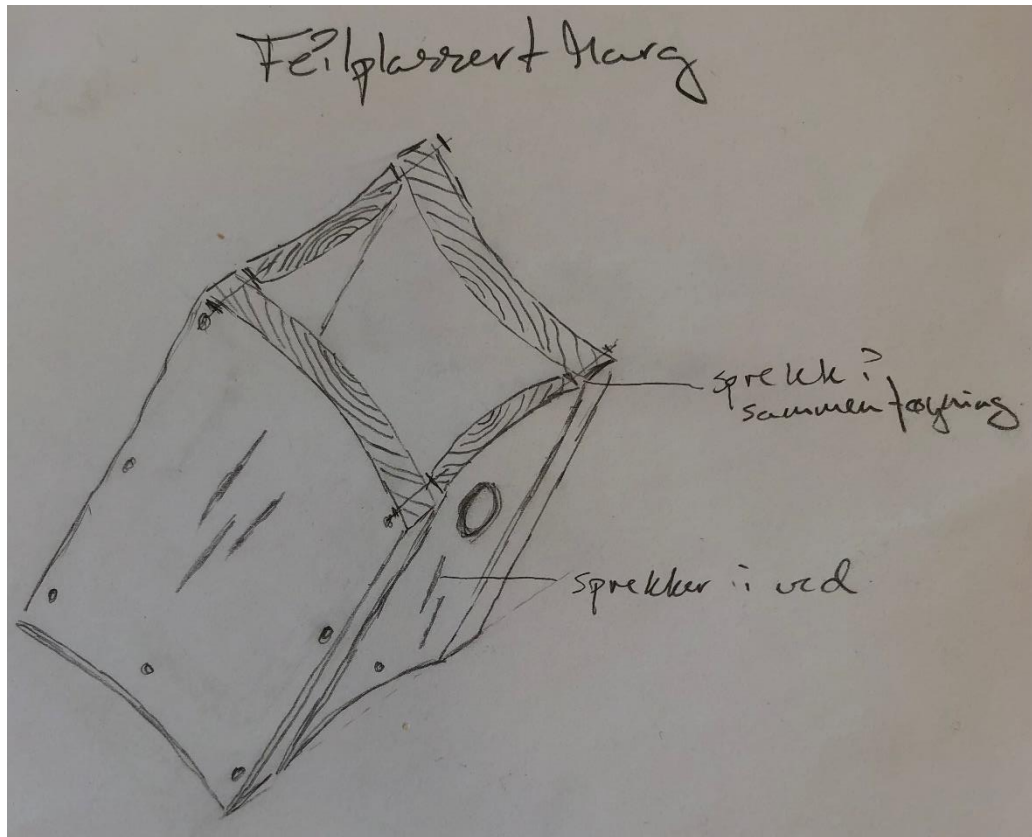 Feilplassert Marg
sprekk i
sammenføyning
sprekker i ved